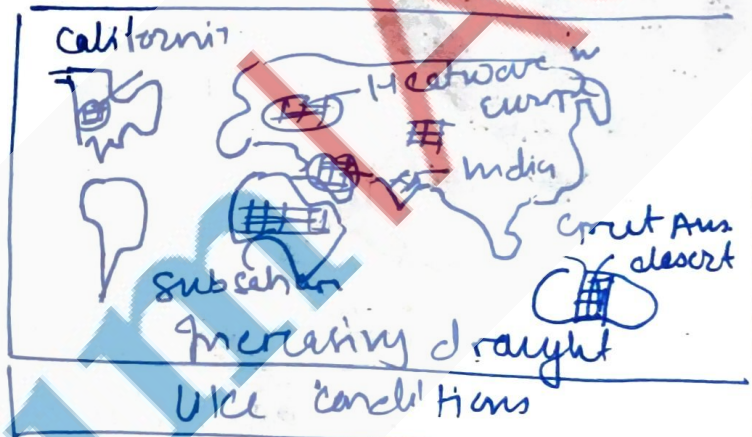 California
Heatwave in
Europe
India
Great Aus
desert
Subsaharan
Increasing draught
like conditions